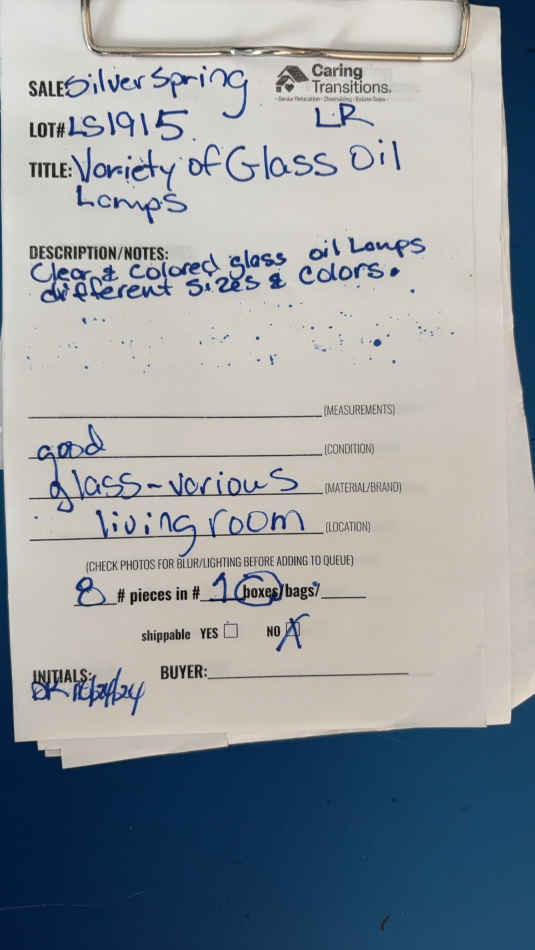 SALE: Silver Spring
Caring
Transitions.
- Senior Relocation • Downsizing • Estate Sales -
LOT# LS1915
LR
TITLE: Variety of Glass Oil
Lamps
DESCRIPTION/NOTES:
Clear & Colored glass oil Lamps
different sizes & colors.
(MEASUREMENTS)
good (CONDITION)
glass-various (MATERIAL/BRAND)
living room (LOCATION)
(CHECK PHOTOS FOR BLUR/LIGHTING BEFORE ADDING TO QUEUE)
8 # pieces in # 1 boxes/bags/
shippable YES NO X
INITIALS: BUYER:
DK